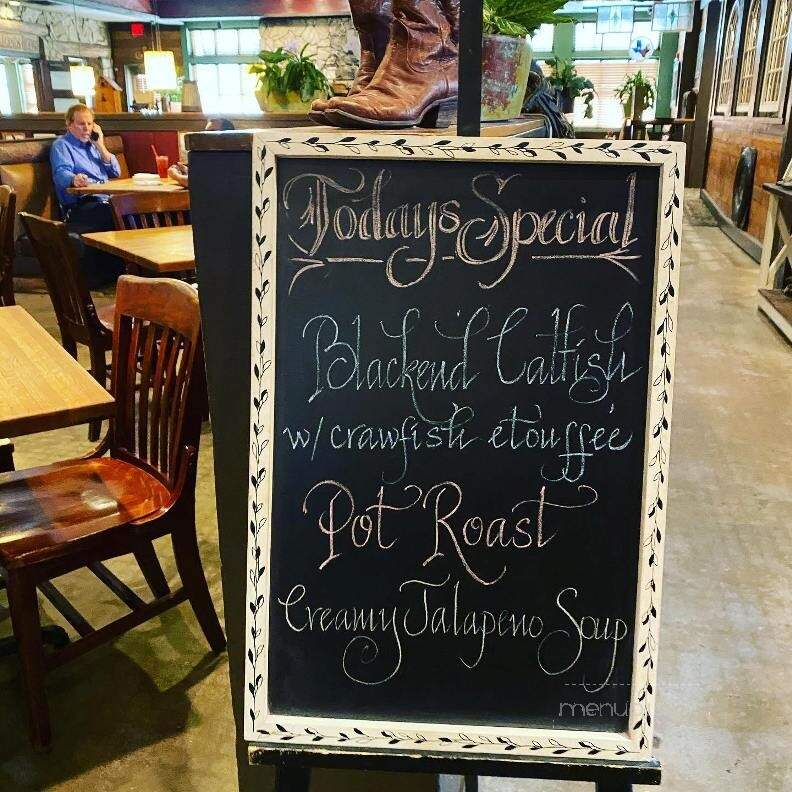 Todays Special
Blackend Catfish
w/ crawfish etouffée
Pot Roast
Creamy Jalapeno Soup
menu